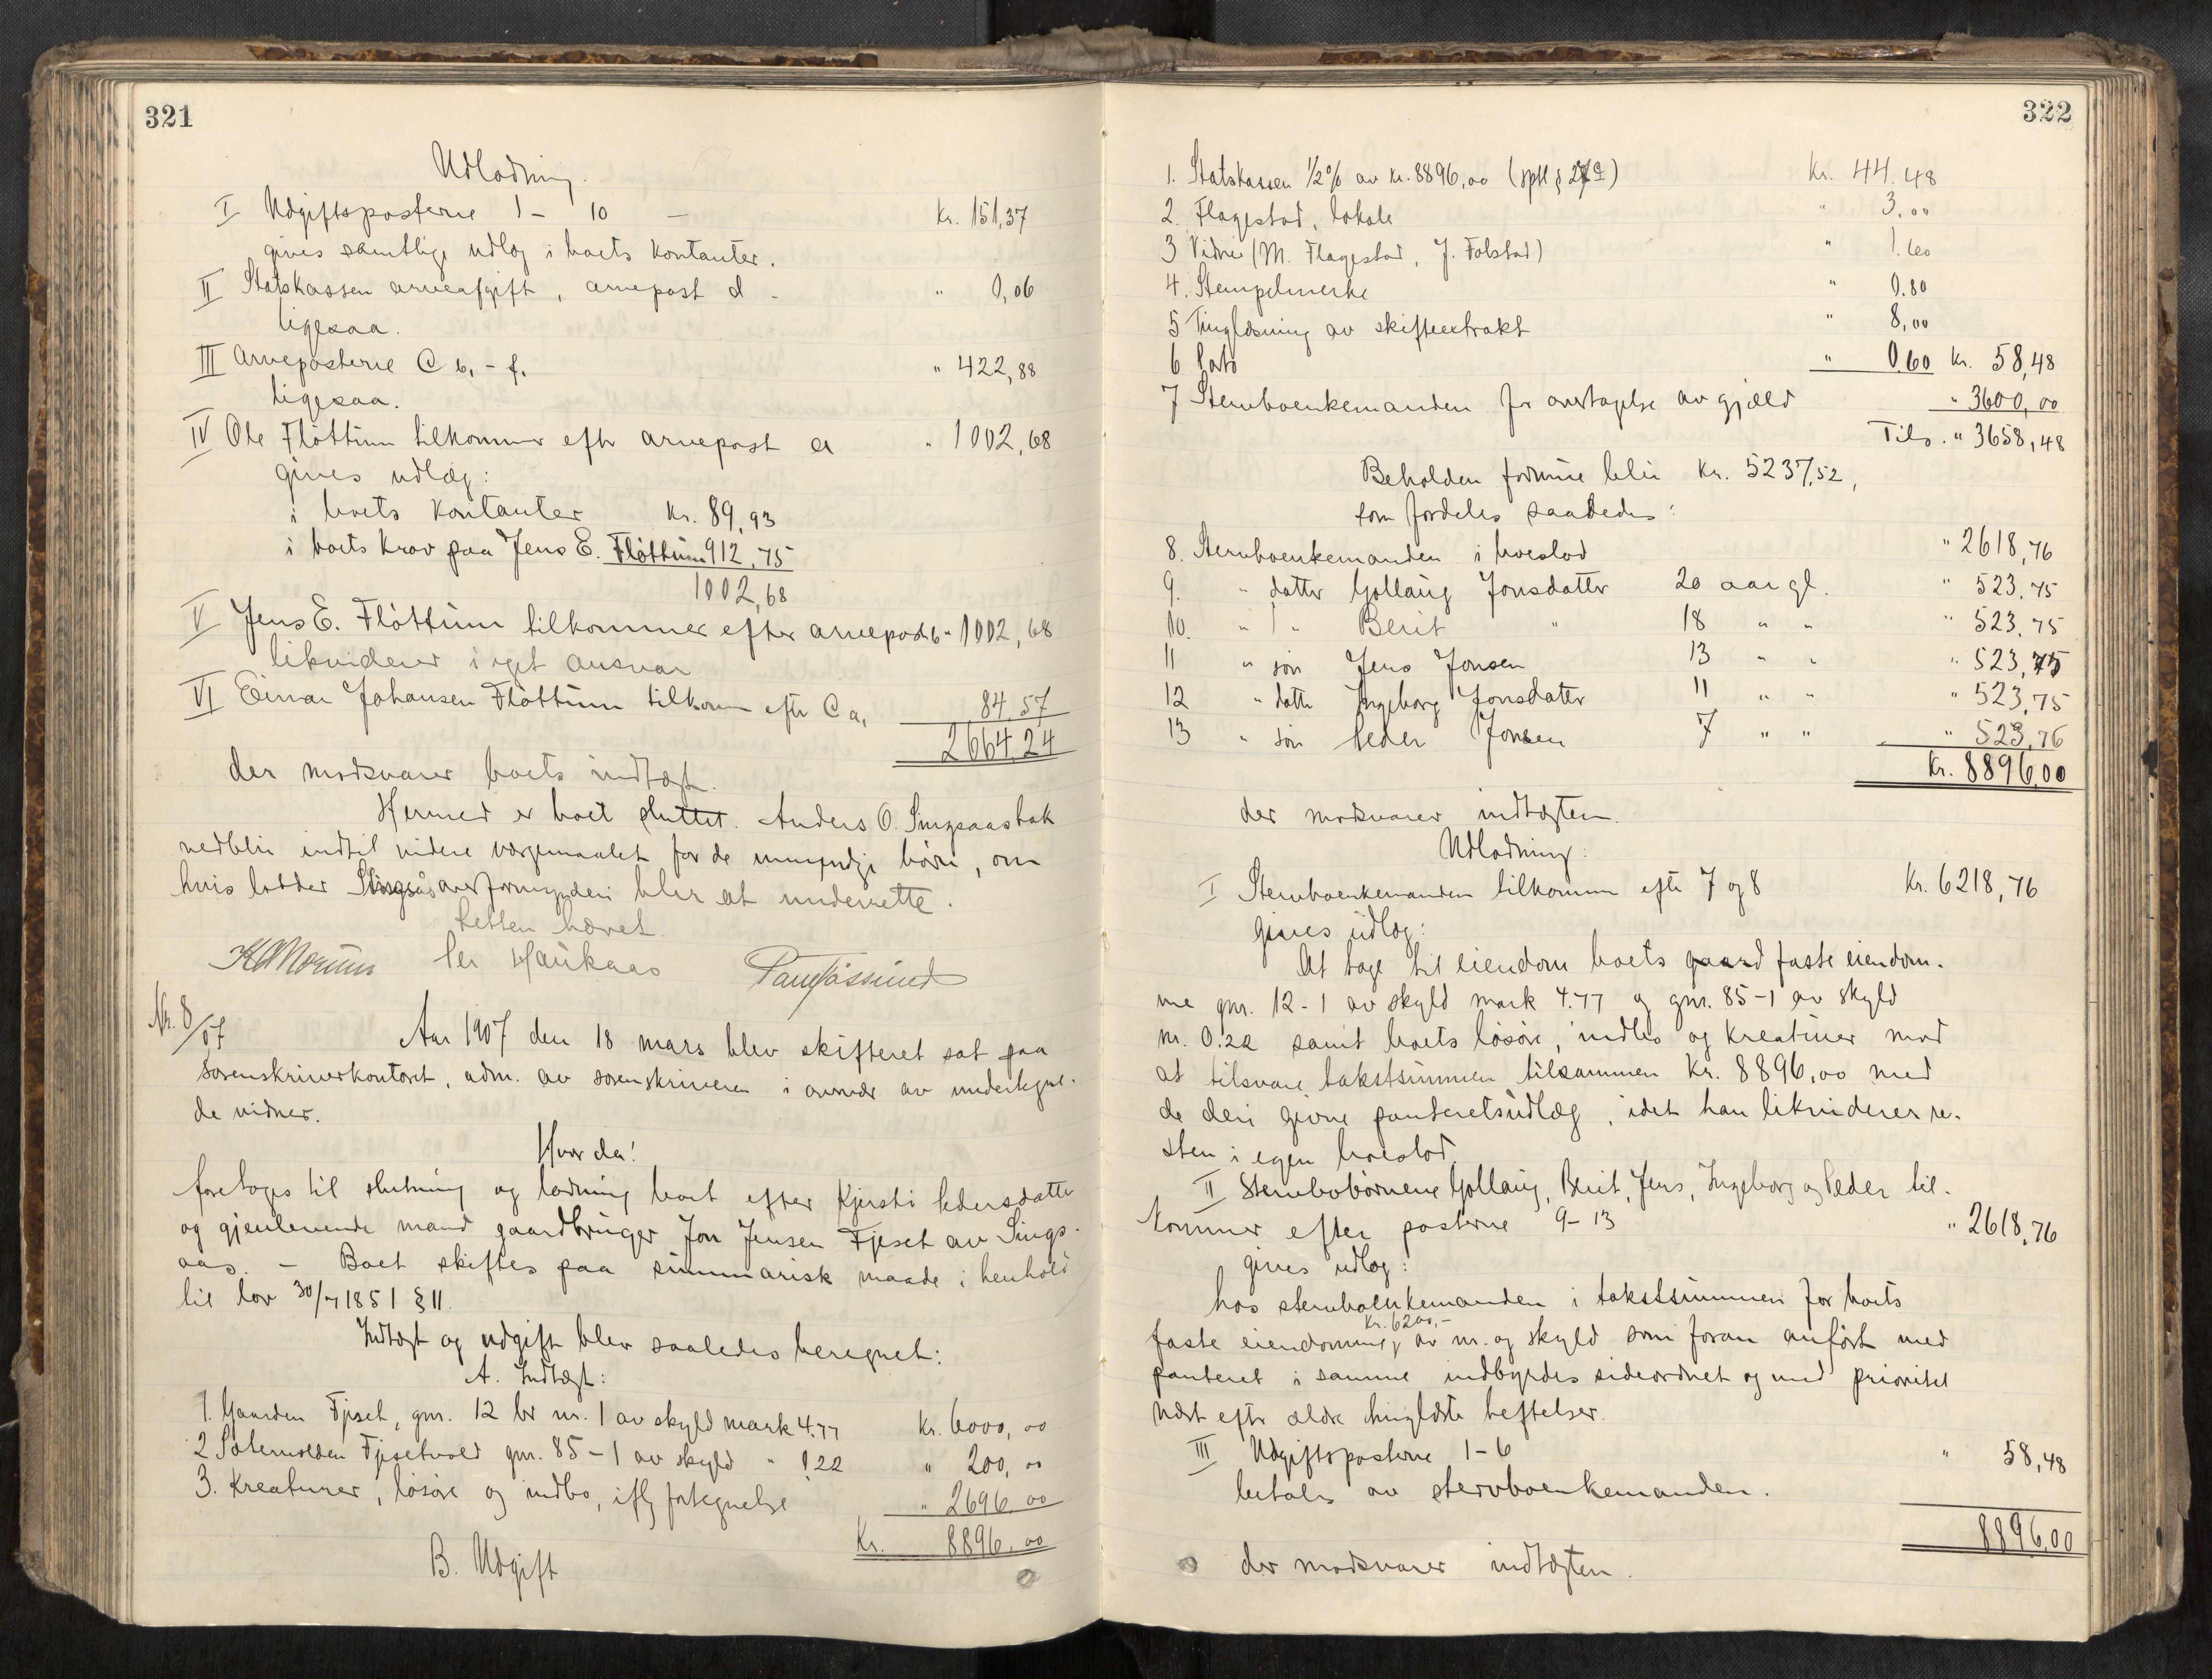 321
Udlodning.
I Udgiftsposterne 1 - 10 - Kr. 151,37
gives samtlige udlæg i boets kontanter.
II Statskassen arveafgift, arvepost d - " 0,06
ligesaa.
III Arveposterne C b. - f. " 422,88
ligesaa.
IV Ole Fløttum tilkommer eftr arvepost a " 1002,68
gives udlæg:
i boets kontanter Kr. 89,93
i boets krav paa Jens E. Fløttum 912,75
1002,68
V Jens E. Fløttum tilkommer efter arvepost b " 1002,68
likviderer i eget ansvar
VI Einar Johansen Fløttum tilkom eftr C a, 84,57
2664,24
der modsvarer boets indtægt.
Hermed er boet sluttet. Anders O. Singsaasbak
vedblir indtil videre værgemaalet for de umyndige børn, om
hvis lodder Singsås overformynderi blir at underrette.
Retten hævet.
Per Haukaas
Nr. 8/07
Aar 1907 den 18 mars blev skifteret sat paa
sorenskriverkontoret, adm. av sorenskriveren i overvær av undertegne-
de vidner.
Hvor da!
foretoges til slutning og lodning boet efter Kjersti Pedersdatter
og gjenlevende mand gaardbruger Jon Jensen Fjeset av Sings-
aas. - Boet skiftes paa summarisk maade i henhold
til lov 30/7 1851 § 11.
Indtægt og udgift blev saaledes beregnet:
A. Indtægt:
1. Gaarden Fjeset, gnr. 12 br nr. 1 av skyld mark 4.77 Kr. 6000,00
2 Sætervolden Fjesetvold gnr. 85-1 av skyld " 0.22 " 200,00
3. Kreaturer, løsøre og indbo, iflg fortegnelse " 2696,00
Kr. 8896,00
B. Udgift
322
1. Statskassen 1/2 % av Kr. 8896,00 Kr. 44.48
2. Flagestad, lokale " 3.00
3 Vidner (M. Flagestad, J. Folstad) " 1.60
4. Stempelmerke " 0.80
5 Tinglæsning av skifteextrakt " 8,00
6 Porto " 0.60 Kr. 58,48
7 Stervboenkemanden for overtagelse av gjæld " 3600,00
Tils. " 3658,48
Beholden formue blir Kr. 5237,52,
som fordeles saaledes:
8. Stervboenkemanden i boeslod " 2618,76
9. " datter Gollaug Jonsdatter 20 aar gl. " 523,75
10. " " Berit " 18 " " " 523,75
11 " søn Jens Jonsen 13 " " " 523,75
12 " datter Ingeborg Jonsdatter 11 " " " 523,75
13 " søn Peder Jonsen 7 " " " 523,76
Kr. 8896,00
der modsvarer indtægten.
Udlodning:
I Stervboenkemanden tilkommer eftr 7 og 8 Kr. 6218,76
gives udlæg:
At tage til eiendom boets gaard faste eiendom-
me gnr. 12-1 av skyld mark 4.77 og gnr. 85-1 av skyld
m. 0.22 samt boets løsøre, indbo og kreaturer mod
at tilsvare takstsummen tilsammen Kr. 8896,00 med
de deri givne panteretsudlæg, idet han likviderer re-
sten i egen boeslod.
II Stervbobørnene Gollaug, Berit, Jens, Ingeborg og Peder til-
kommer efter posterne 9-13 " 2618,76
gives udlæg:
hos stervboenkemanden i takstsummen for boets
faste eiendomme, Kr. 6200,- av nr. og skyld som foran anført med
panteret i samme indbyrdes sideordnet og med prioritet
næst eftr ældre tinglæste heftelser.
III Udgiftsposterne 1-6 " 58,48
betales av stervboenkemanden.
8896,00
der modsvarer indtægten.